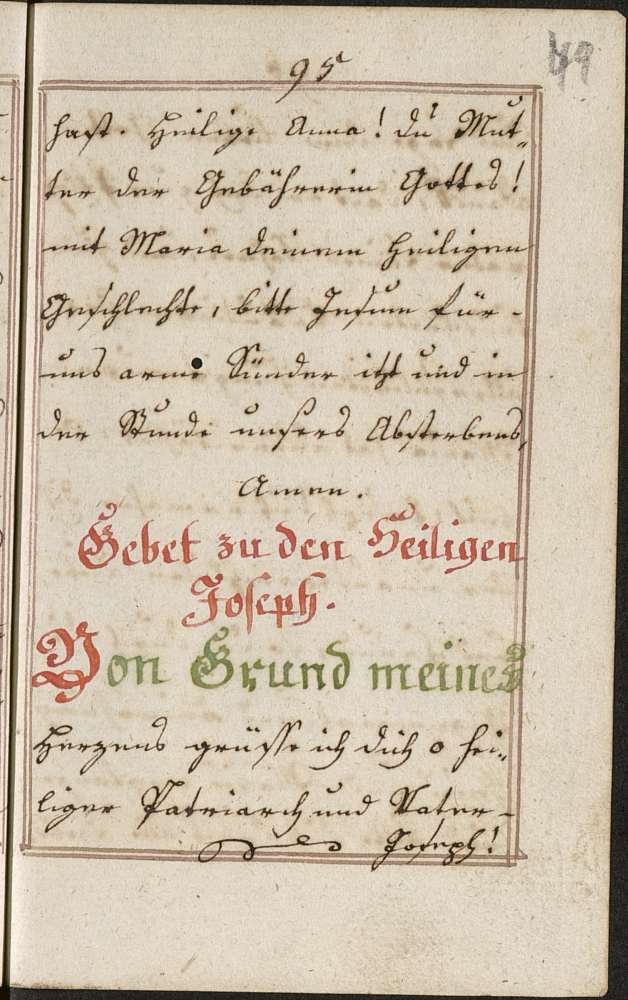 95
49
hast. Heilige Anna! du Mut„
ter der Gebährerin Gottes!
mit Maria deinem heiligen
Geschlechte, bitte Jesum für-
uns arme Sünder itzt und in
der Stunde unsers Absterbens,
Amen.
Gebet zu den Heiligen
Joseph.
Von Grund meines
Herzens grüsse ich dich o hei„
liger Patriarch und Vater-
Joseph!